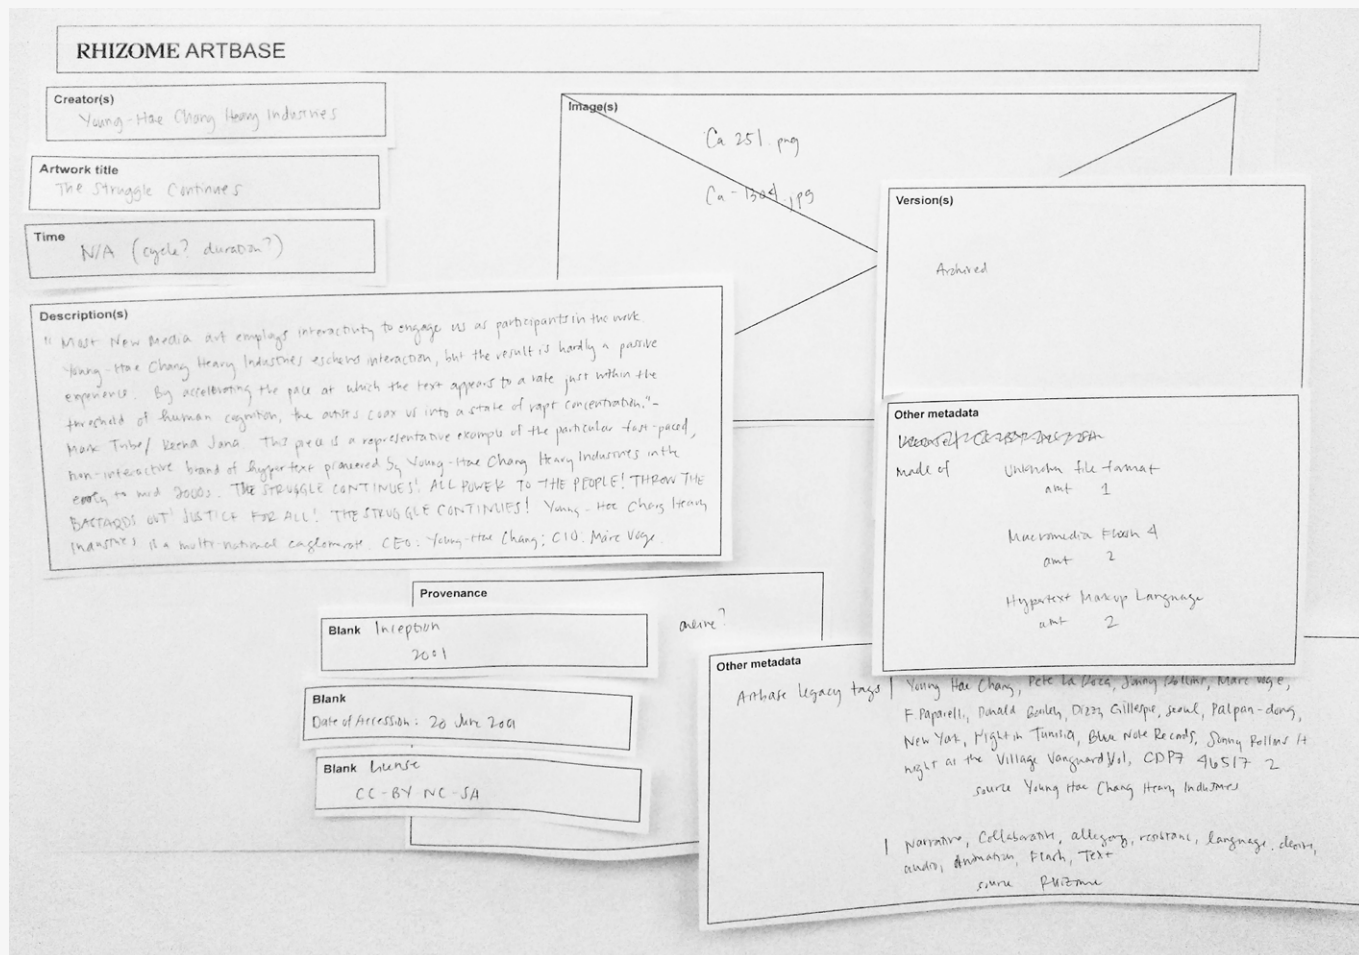 RHIZOME ARTBASE
Creator(s)
Young-Hae Chang Heavy Industries
Artwork title
The Struggle Continues
Time
N/A (cycle? duration?)
Description(s)
" Most New Media art employs interactivity to engage us as participants in the work
Young-Hae Chang Heavy Industries eschews interaction, but the result is hardly a passive
experience. By accelerating the pace at which the text appears to a rate just within the
threshold of human cognition, the artists coax us into a state of rapt concentration."-
Mark Tribe/ Reena Jana This piece is a representative example of the particular fast-paced,
non-interactive brand of hypertext pioneered by Young-Hae Chang Heavy Industries in the
early to mid 2000s. THE STRUGGLE CONTINUES! ALL POWER TO THE PEOPLE! THROW THE
BASTARDS OUT! JUSTICE FOR ALL! THE STRUGGLE CONTINUES! Young-Hae Chang Heavy
Industries is a multi-national conglomerate. CEO: Young-Hae Chang; CIO: Marc Voge.
Image(s)
Ca 251.png
Ca-1304.jpg
Version(s)
Archived
Other metadata
made of
Unknown file format
amt 1
Macromedia Flash 4
amt 2
Hypertext Markup Language
amt 2
Provenance
Blank Inception
2001
Blank
Date of Accession: 20 June 2001
Blank License
CC-BY NC-SA
Other metadata
Artbase legacy tags | Young Hae Chang, Pete La Roca, Sonny Rollins, Marc Voge,
F. Paparelli, Donald Bailey, Dizzy Gillespie, Seoul, Palpan-dong,
New York, Night in Tunisia, Blue Note Records, Sonny Rollins A
night at the Village Vanguard Vol, CDP7 46517 2
source Young Hae Chang Heavy Industries
| Narrative, Collaborative, allegory, resistance, language, desire,
audio, Animation, Flash, Text
source Rhizome